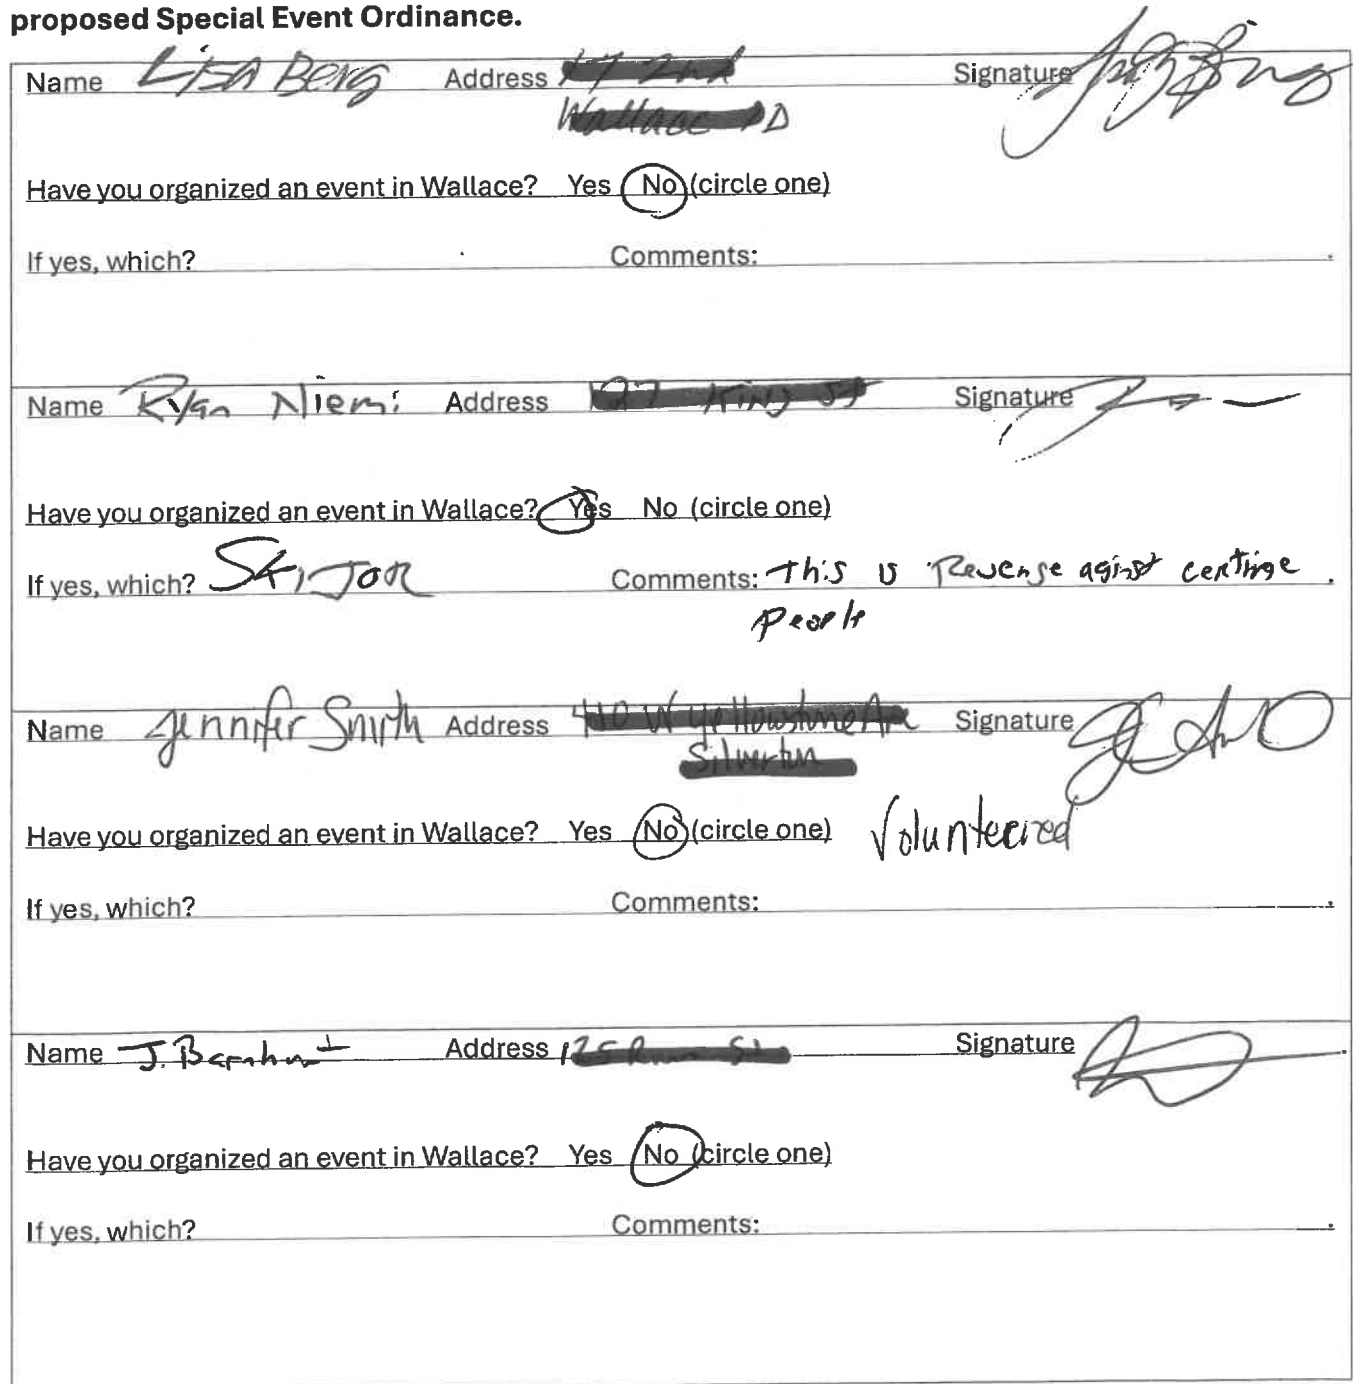 proposed Special Event Ordinance.
Name Lisa Berg Address Signature
D
Have you organized an event in Wallace? Yes No (circle one)
If yes, which? Comments: .
Name Ryan Niemi Address Signature
Have you organized an event in Wallace? Yes No (circle one)
If yes, which? SkiJOR Comments: This is Revenge aginst certine .
People
Name Jennifer Smith Address Signature
Have you organized an event in Wallace? Yes No (circle one) Volunteered
If yes, which? Comments: .
Name J. Barnhart Address Signature .
Have you organized an event in Wallace? Yes No (circle one)
If yes, which? Comments: .